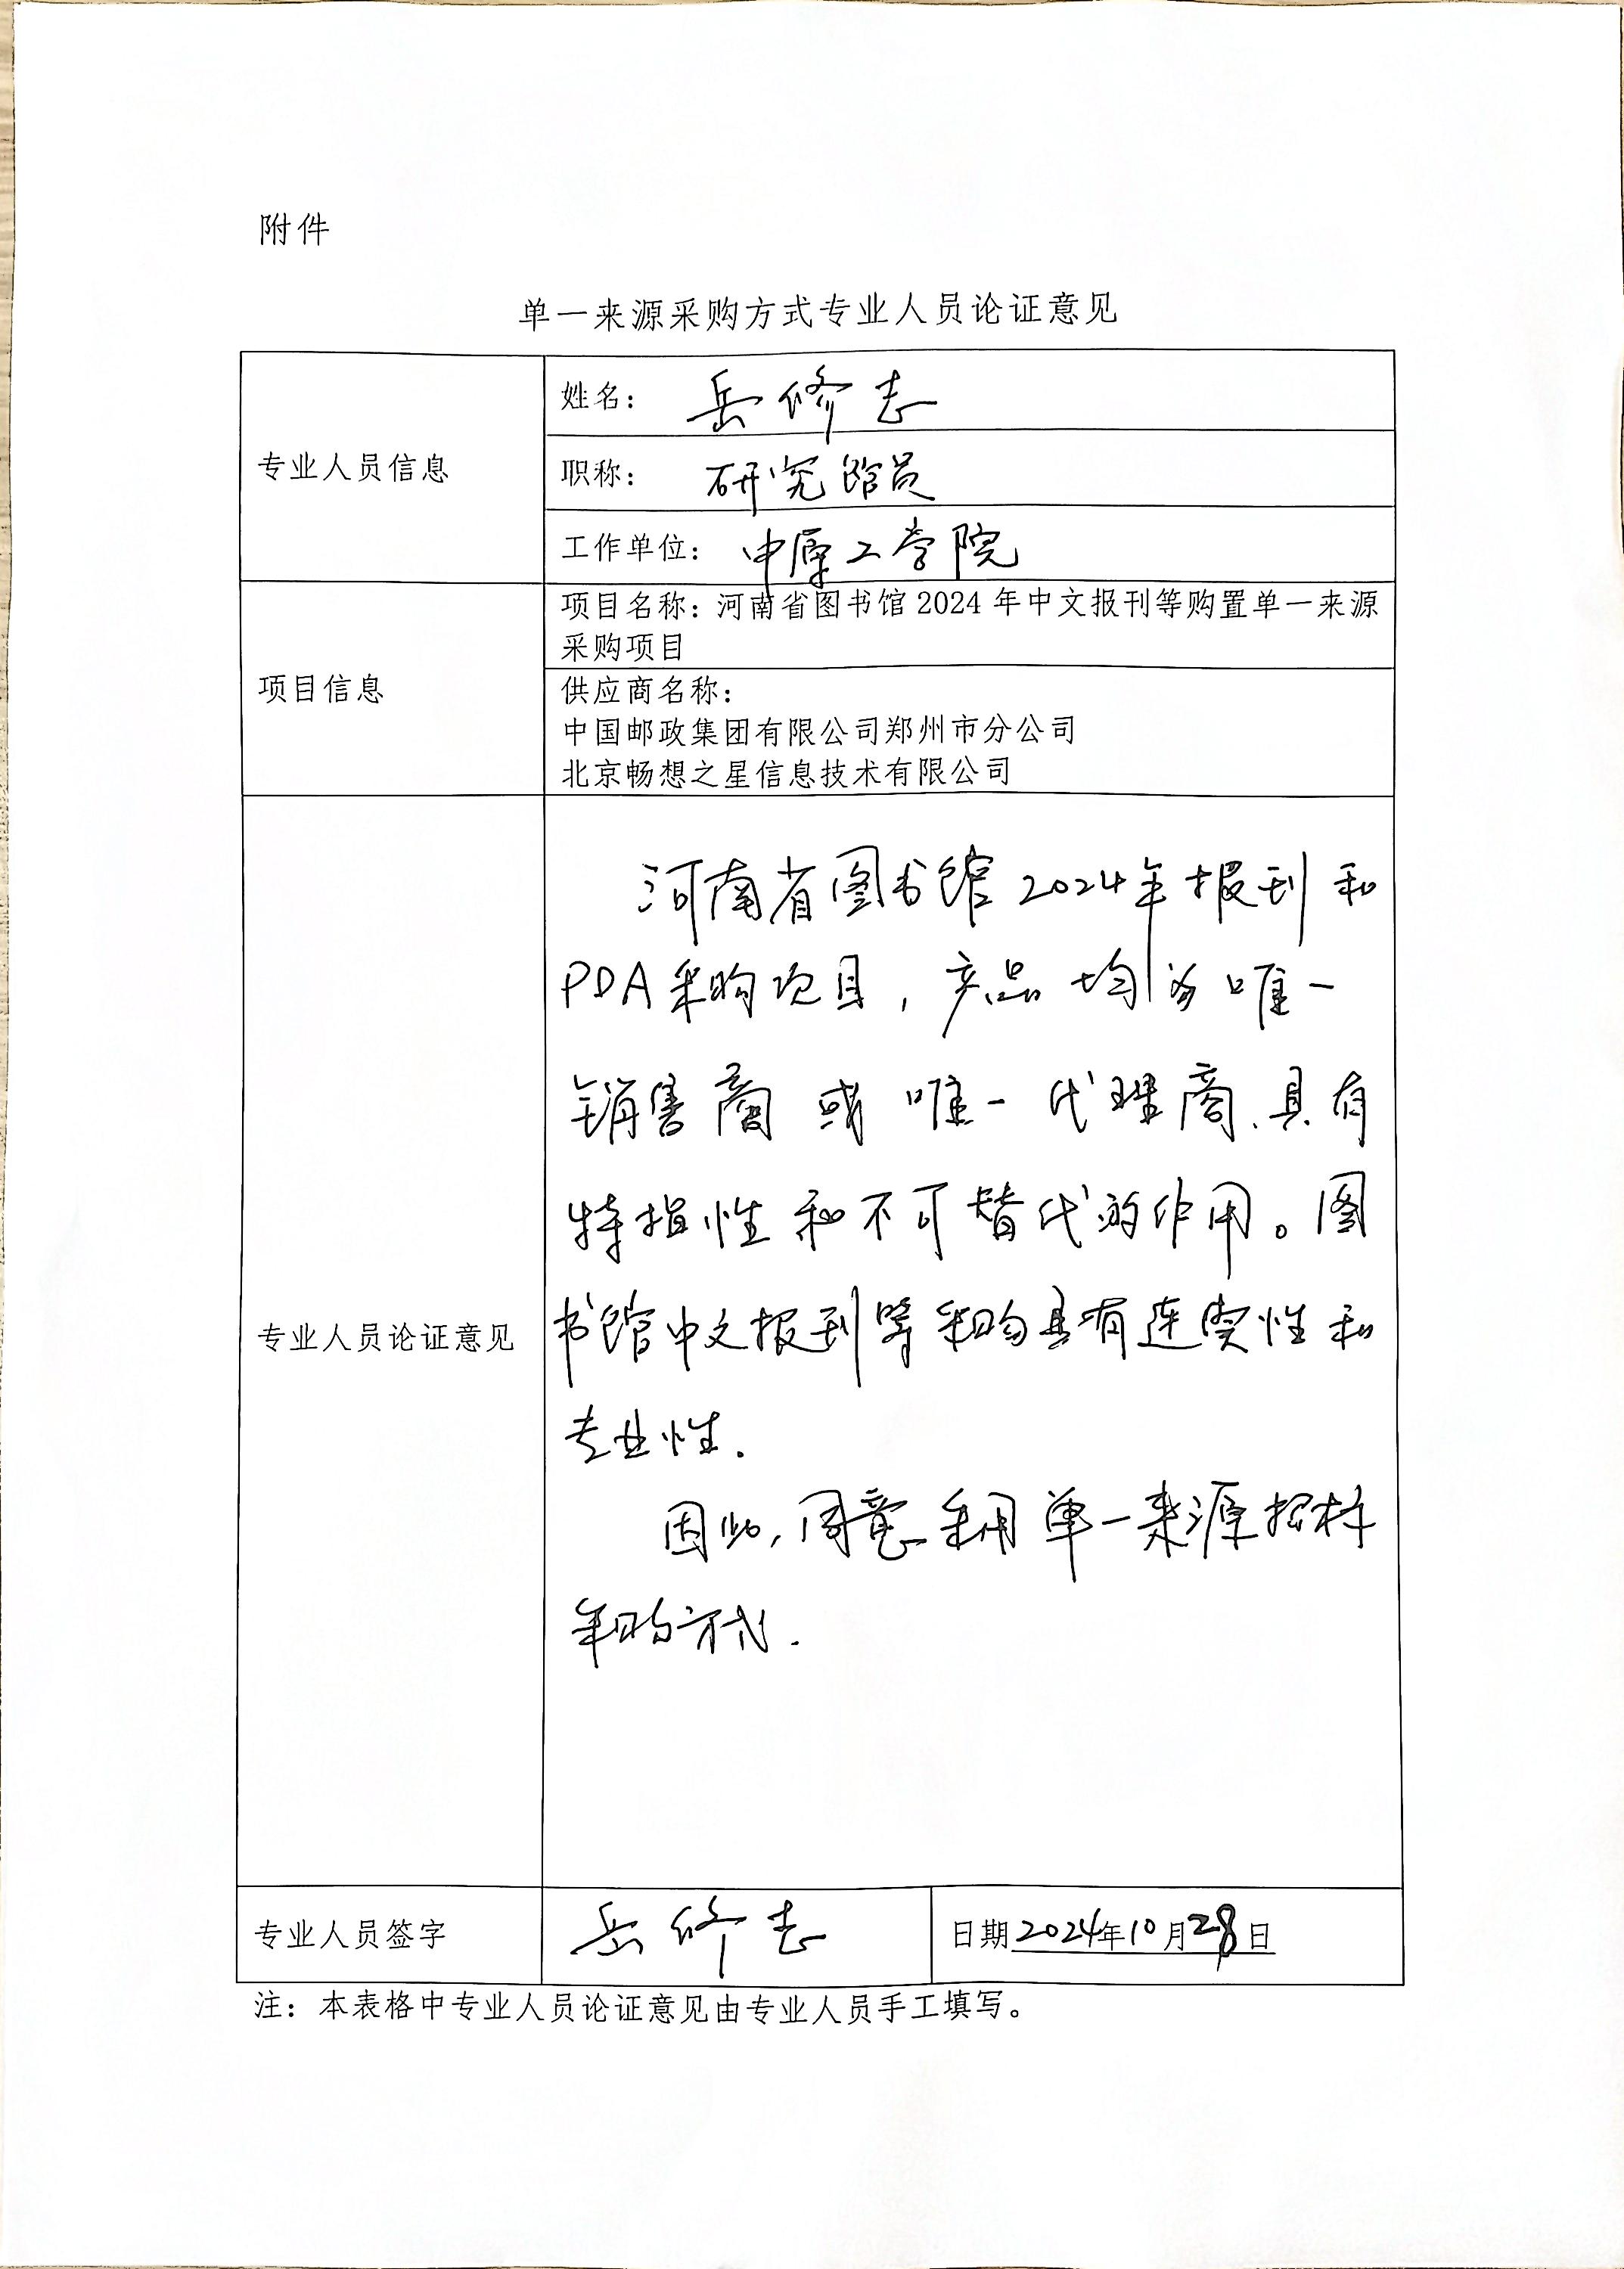 附件
单一来源采购方式专业人员论证意见
专业人员信息
姓名：岳修志
职称：研究馆员
工作单位：中原工学院
项目信息
项目名称：河南省图书馆 2024 年中文报刊等购置单一来源
采购项目
供应商名称：
中国邮政集团有限公司郑州市分公司
北京畅想之星信息技术有限公司
专业人员论证意见
河南省图书馆2024年报刊和
PDA采购项目，产品均为唯一
销售商或唯一代理商、具有
特指性和不可替代的作用。图
书馆中文报刊等采购具有连续性和
专业性.
因此，同意采用单一来源招标
采购方式.
专业人员签字
岳修志
日期2024年10月28日
注：本表格中专业人员论证意见由专业人员手工填写。